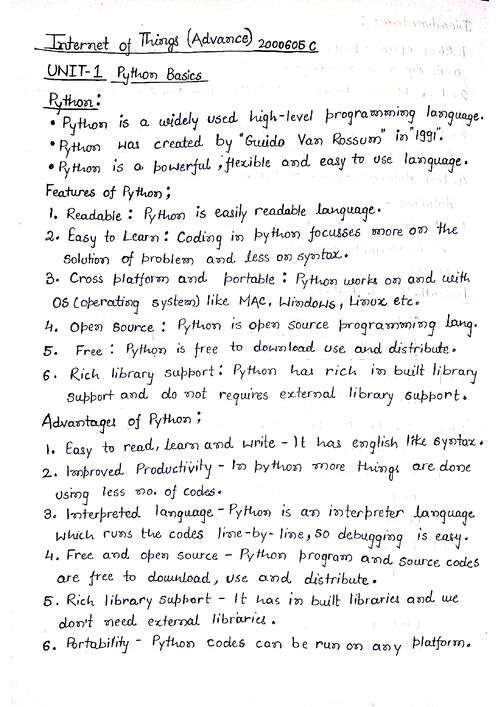 Internet of Things (Advance) 2000605 C
UNIT-1 Python Basics
Python:
• Python is a widely used high-level programming language.
• Python was created by "Guido Van Rossum" in "1991".
• Python is a powerful, flexible and easy to use language.
Features of Python;
1. Readable: Python is easily readable language.
2. Easy to Learn: Coding in python focusses more on the
solution of problem and less on syntax.
3. Cross platform and portable: Python works on and with
OS (operating system) like MAC, Windows, Linux etc.
4. Open Source: Python is open source programming lang.
5. Free: Python is free to download use and distribute.
6. Rich library support: Python has rich in built library
support and do not requires external library support.
Advantages of Python;
1. Easy to read, learn and write - It has english like syntax.
2. Improved Productivity - In python more things are done
using less no. of codes.
3. Interpreted language - Python is an interpreter language
which runs the codes line-by-line, so debugging is easy.
4. Free and open source - Python program and source codes
are free to download, use and distribute.
5. Rich library support - It has in built libraries and we
don't need external libraries.
6. Portability - Python codes can be run on any platform.